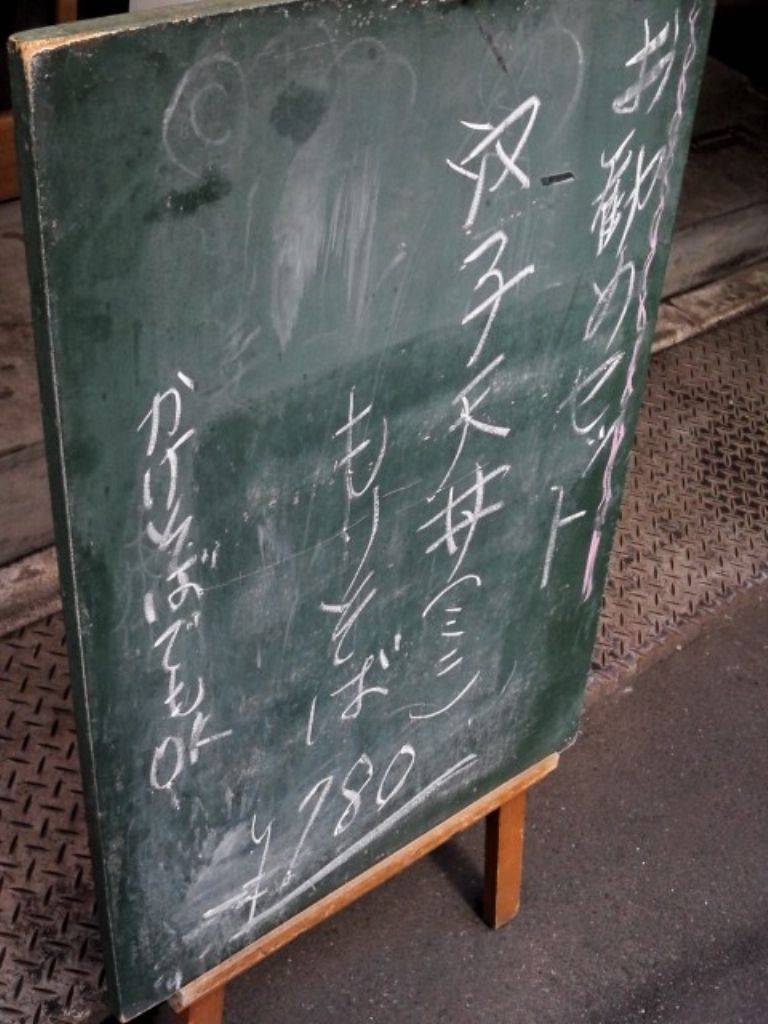 お勧めセット
穴子天丼(ミニ)
もりそば
¥780
かけそばでもOK